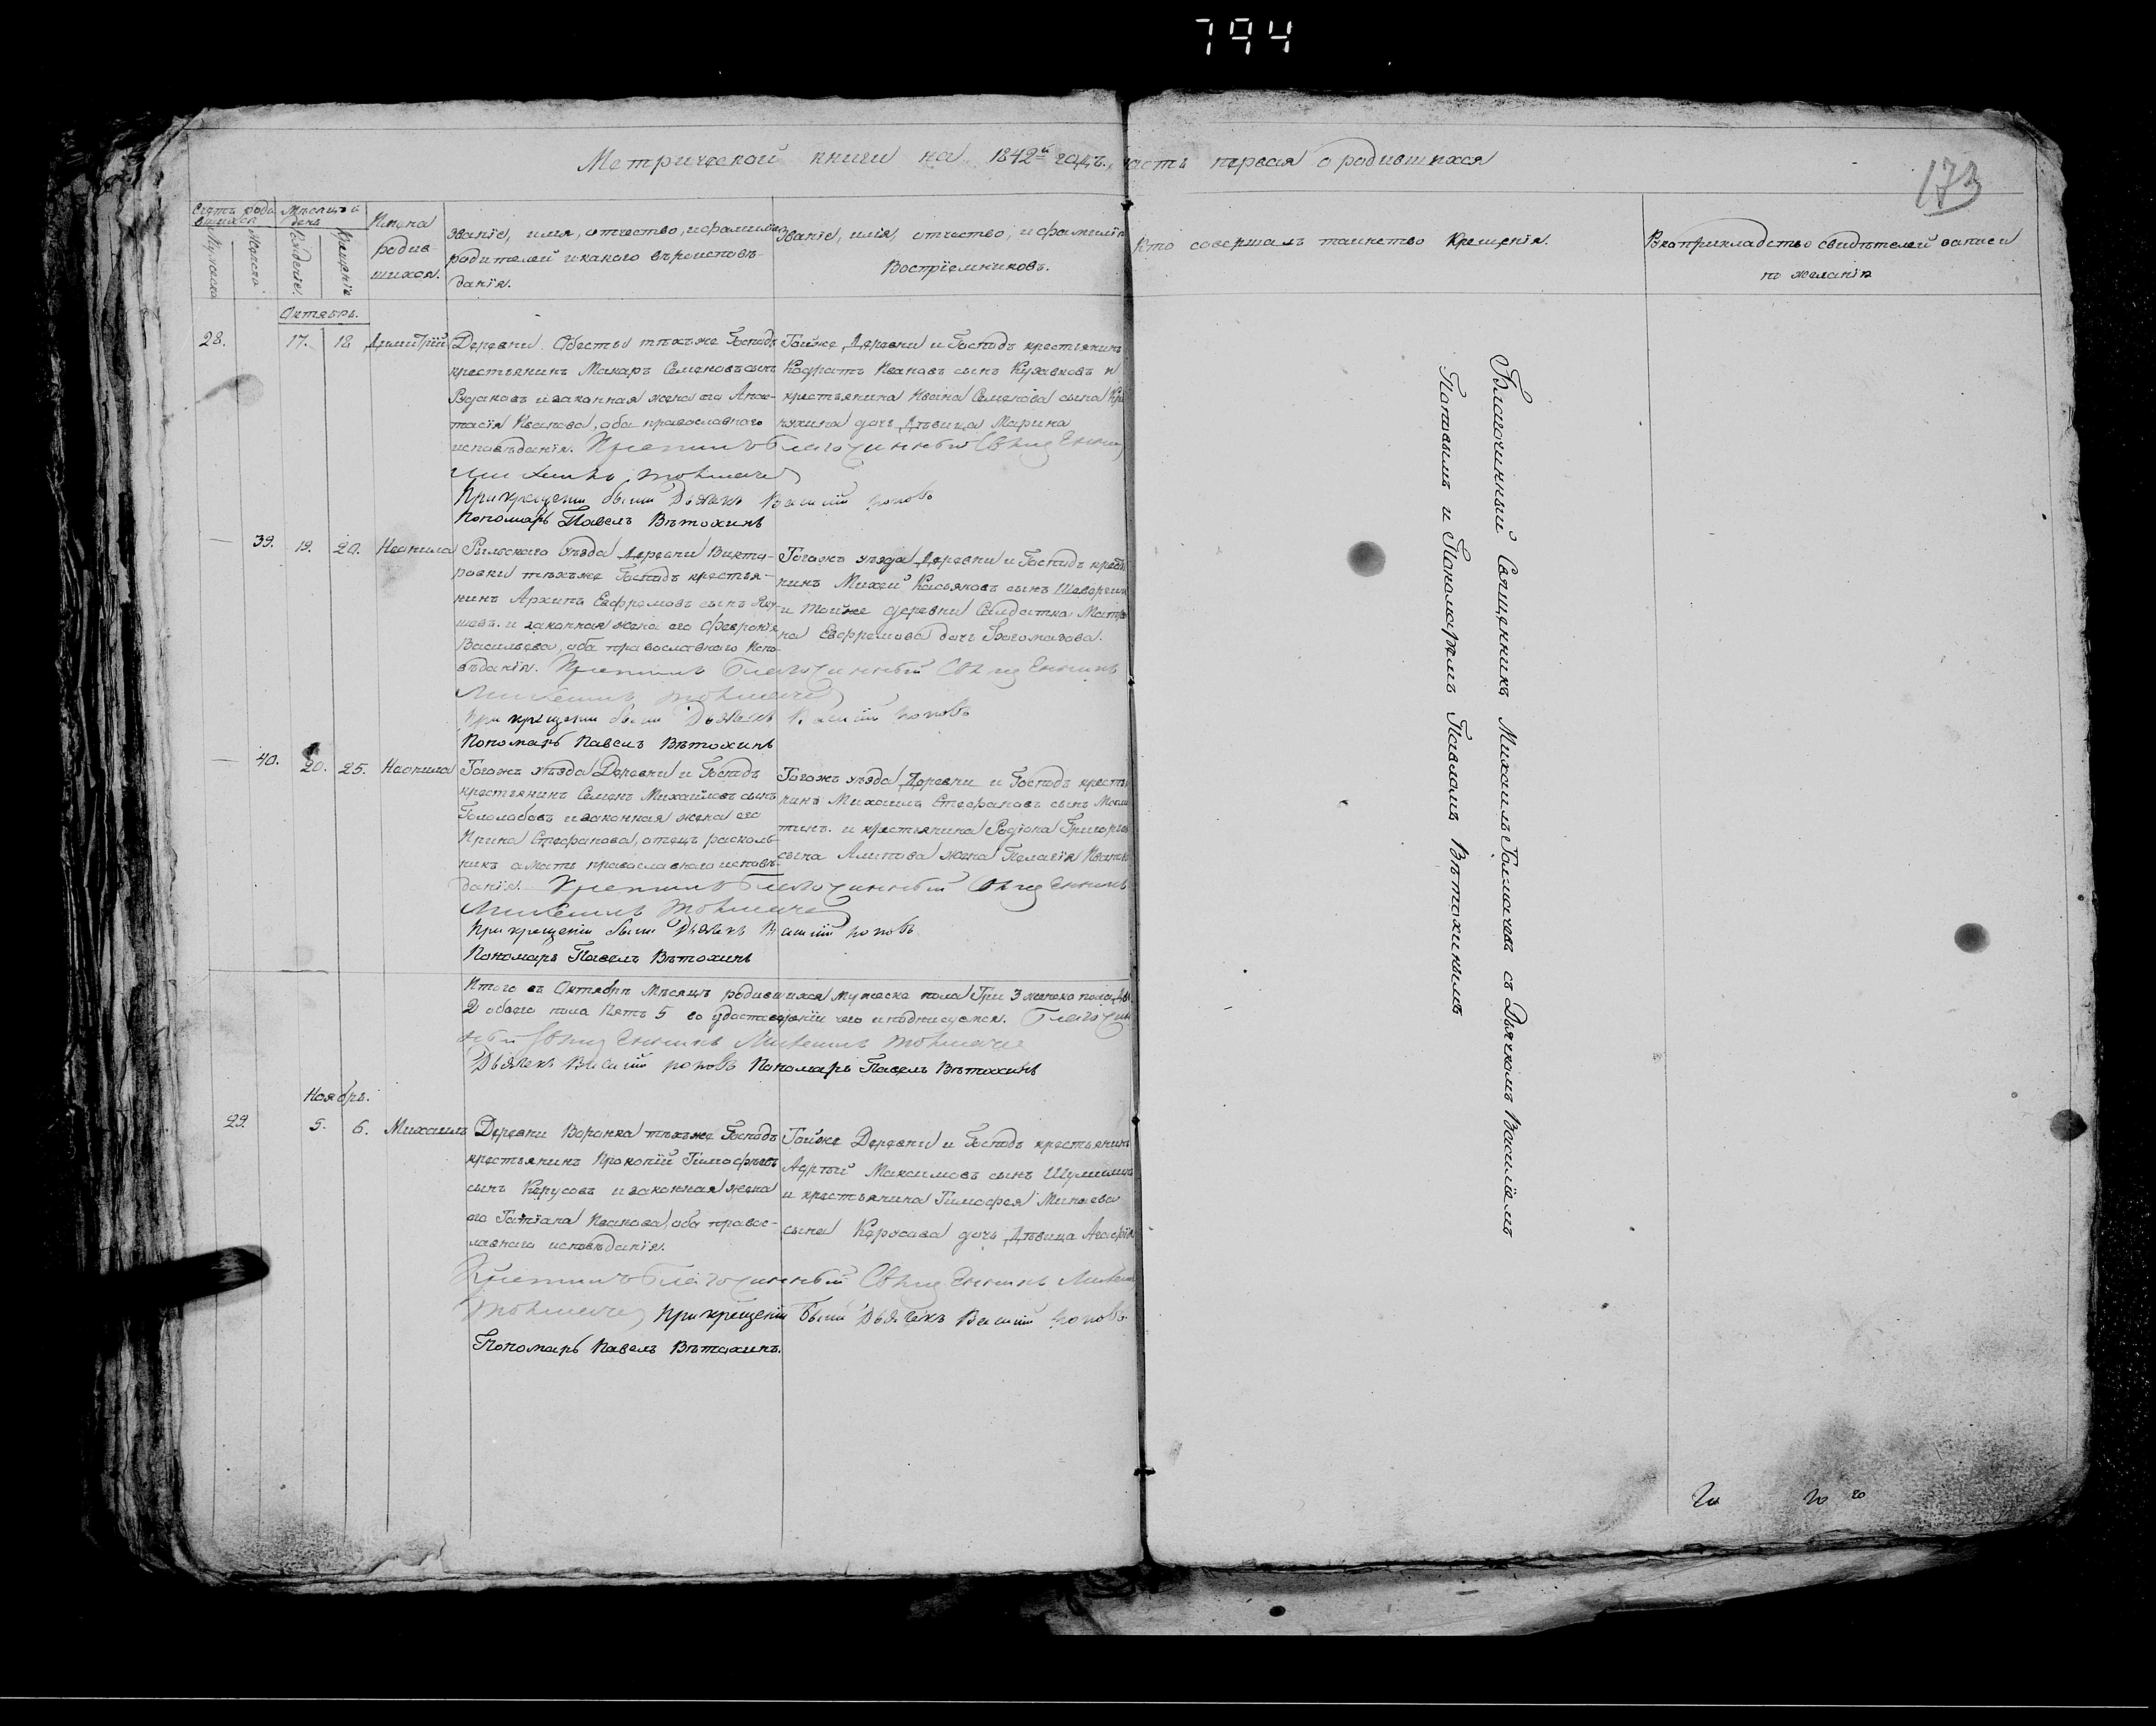 794
Метрической книги на 1842й годъ, часть первая о родившихся
173
Счетъ роди
вшихся
Мужеска
Женска
Мѣсяцъ и
день
Рожденіе
Крещеніе
Имена
родив-
шихся.
Званіе, имя, отчество, и фамилія
родителей и какого вѣроисповѣ-
данія.
Званіе, имя, отчество, и фамилія
Воспріемниковъ.
Кто совершалъ таинство Крещенія.
Рукоприкладство свидѣтелей записи
по желанію
Октябрь.
28. 17. 18 Димитрій
Деревни Обесты тѣхъже Господъ
крестьянинъ Макаръ Семеновъ сынъ
Рудаковъ и законная жена его Анас-
тасія Иванова, оба православнаго
исповѣданія. Крестилъ Благочинный Священни
Михаилъ Толмачев
При крещеніи были Дьячекъ Василій Поповъ
Пономарь Павелъ Вѣтохинъ
Тойже Деревни и Господъ крестьянинъ
Кодратъ Ивановъ сынъ и
крестьянина Ивана Семенова сына
дочь Дѣвица Марина
39. 19. 20. Неонила
Рыльскаго уѣзда Деревни Викто-
ровки тѣхъже Господъ крестья-
нинъ Архипъ Евфремовъ сынъ
и законная жена его Февронія
Васильева, оба православнаго испо-
вѣданія. Крестилъ Благочинный Священникъ
Михаилъ Толмачев
При крещеніи были Дьячекъ Василій Поповъ
Пономарь Павелъ Вѣтохинъ
Тогожъ уѣзда Деревни и Господъ кресть
нинъ Михей Касьяновъ сынъ
и тойже деревни Солдатка Матре
на Евфремова дочь Богомазова.
40. 20. 25. Неонила
Тогожъ уѣзда Деревни и Господъ
крестьянинъ Семенъ Михайловъ сынъ
Гололобовъ и законная жена его
Ирина Стефанова, отецъ расколь-
никъ а мать православнаго исповѣ-
данія. Крестилъ Благочинный Священникъ
Михаилъ Толмачев
При крещеніи были Дьячекъ Василій Поповъ
Пономарь Павелъ Вѣтохинъ
Тогожъ уѣзда Деревни и Господъ кресть
нинъ Михаилъ Стефановъ сынъ
и крестьянина Родіона Григорьев
сына Алипова жена Пелагія Иванов
Итого въ Октябрѣ Мѣсяцѣ родившихся мужеска пола Три 3 женска пола Два
2 обоего пола Пять 5 во удостовереніи чего и подписуемся. Благочин
ный Священникъ Михаилъ Толмачев
Дьячекъ Василій Поповъ Пономарь Павелъ Вѣтохинъ
Ноябрь.
29. 5. 6. Михаилъ
Деревни Воронка тѣхъже Господъ
крестьянинъ Прокопій Тимофѣевъ
сынъ Карусовъ и законная жена
его Татіана Иванова, оба правос-
лавнаго исповѣданія.
Крестилъ Благочинный Священникъ Михаил
Толмачев При крещеніи были Дьячекъ Василій Поповъ
Пономарь Павелъ Вѣтохинъ.
Тойже Деревни и Господъ крестьянинъ
Максимовъ сынъ
и крестьянина Тимофея Минаева
сына Карусова дочь Дѣвица Агафія
Благочинный Священникъ Михаилъ Толмачевъ съ Дьячкомъ Василіемъ
Поповымъ и Пономаремъ Павломъ Вѣтохинымъ